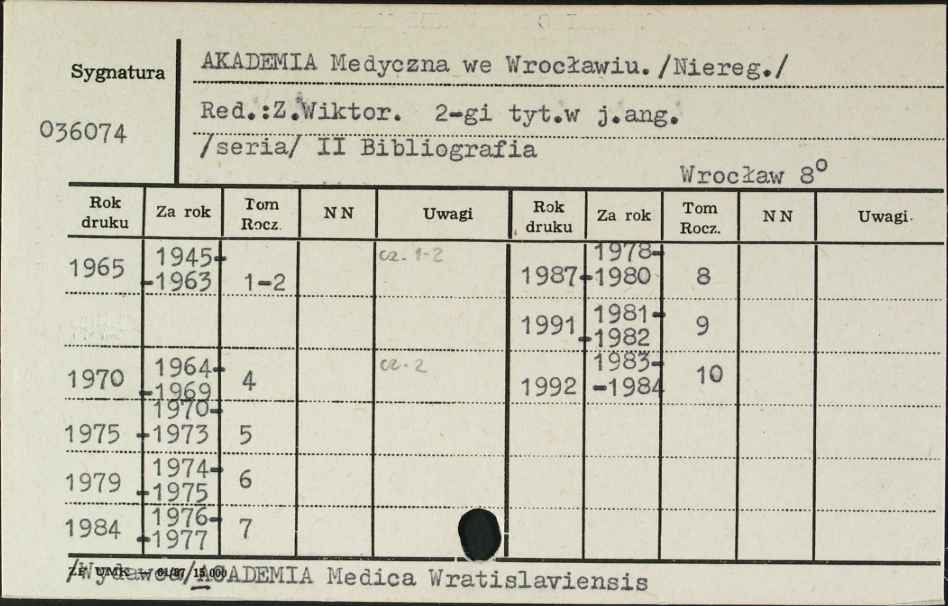 Sygnatura
036074
AKADEMIA Medyczna we Wrocławiu. /Niereg./
Red.:Z.Wiktor. 2-gi tyt.w j.ang.
/seria/ II Bibliografia
Wrocław 8º
Rok druku Za rok Tom Rocz. NN Uwagi Rok druku Za rok Tom Rocz. NN Uwagi
1965 1945-1963 1-2 cz. 1-2 1987 1978-1980 8
1991 1981-1982 9
1970 1964-1969 4 cz. 2 1992 1983-1984 10
1975 1970-1973 5
1979 1974-1975 6
1984 1976-1977 7
/Wydawca/ ACADEMIA Medica Wratislaviensis